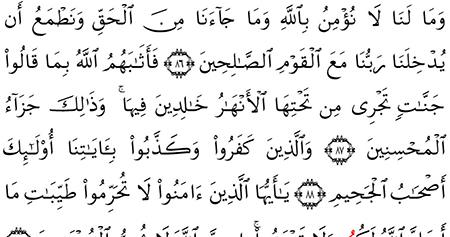 وَمَا لَنَا لَا نُؤْمِنُ بِٱللَّهِ وَمَا جَآءَنَا مِنَ ٱلْحَقِّ وَنَطْمَعُ أَن
يُدْخِلَنَا رَبُّنَا مَعَ ٱلْقَوْمِ ٱلصَّٰلِحِينَ ٨٦ فَأَثَٰبَهُمُ ٱللَّهُ بِمَا قَالُوا۟
جَنَّٰتٍ تَجْرِى مِن تَحْتِهَا ٱلْأَنْهَٰرُ خَٰلِدِينَ فِيهَا ۚ وَذَٰلِكَ جَزَآءُ
ٱلْمُحْسِنِينَ ٨٧ وَٱلَّذِينَ كَفَرُوا۟ وَكَذَّبُوا۟ بِـَٔايَٰتِنَآ أُو۟لَٰٓئِكَ
أَصْحَٰبُ ٱلْجَحِيمِ ٨٨ يَٰٓأَيُّهَا ٱلَّذِينَ ءَامَنُوا۟ لَا تُحَرِّمُوا۟ طَيِّبَٰتِ مَآ